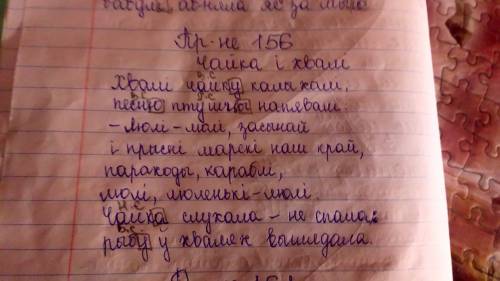 абняла яе за шыю
Пр-не 156
Чайка і хвалі
Хвалі чайку калыхалі,
песню птушцы напявалі:
-Люлі-люлі, засынай
і прысні марскі наш край,
параходы, караблі,
люлі, люленькі-люлі.
Чайка слухала - не спала:
рыбу ў хвалях выглядала.